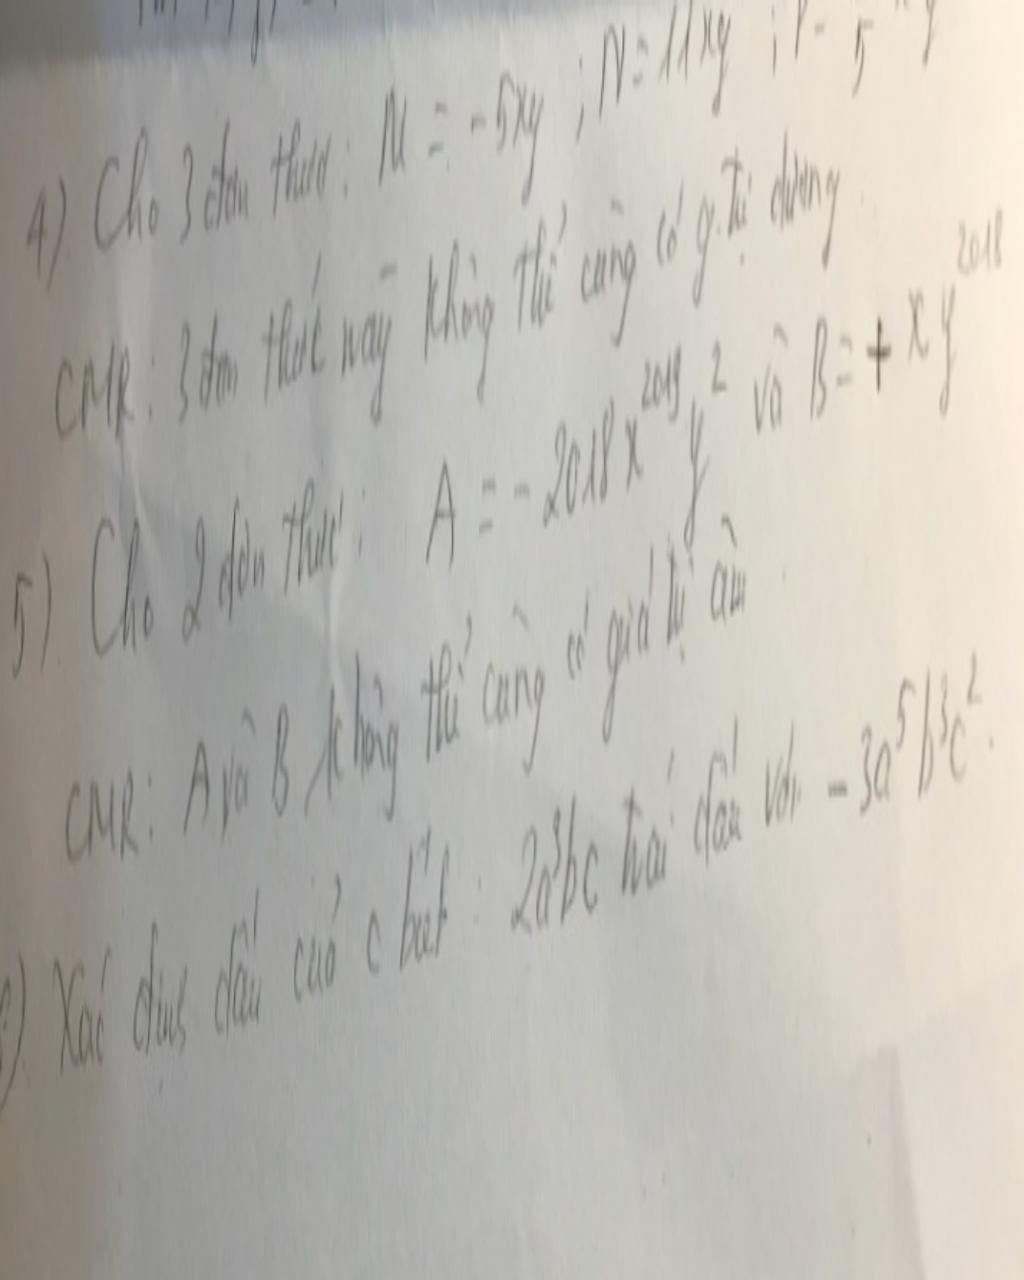 4). Cho 3 đơn thức: M = -5xy ; N = 11xy ;
CMR: 3 đơn thức này không thể cùng có g.trị dương.
5). Cho 2 đơn thức: A = -2018x²⁰¹⁹y² và B = + xy²⁰¹⁸
CMR: A và B không thể cùng có giá trị âm
) Xác định dấu của c biết: 2a³bc trái dấu với -3a⁵b³c².